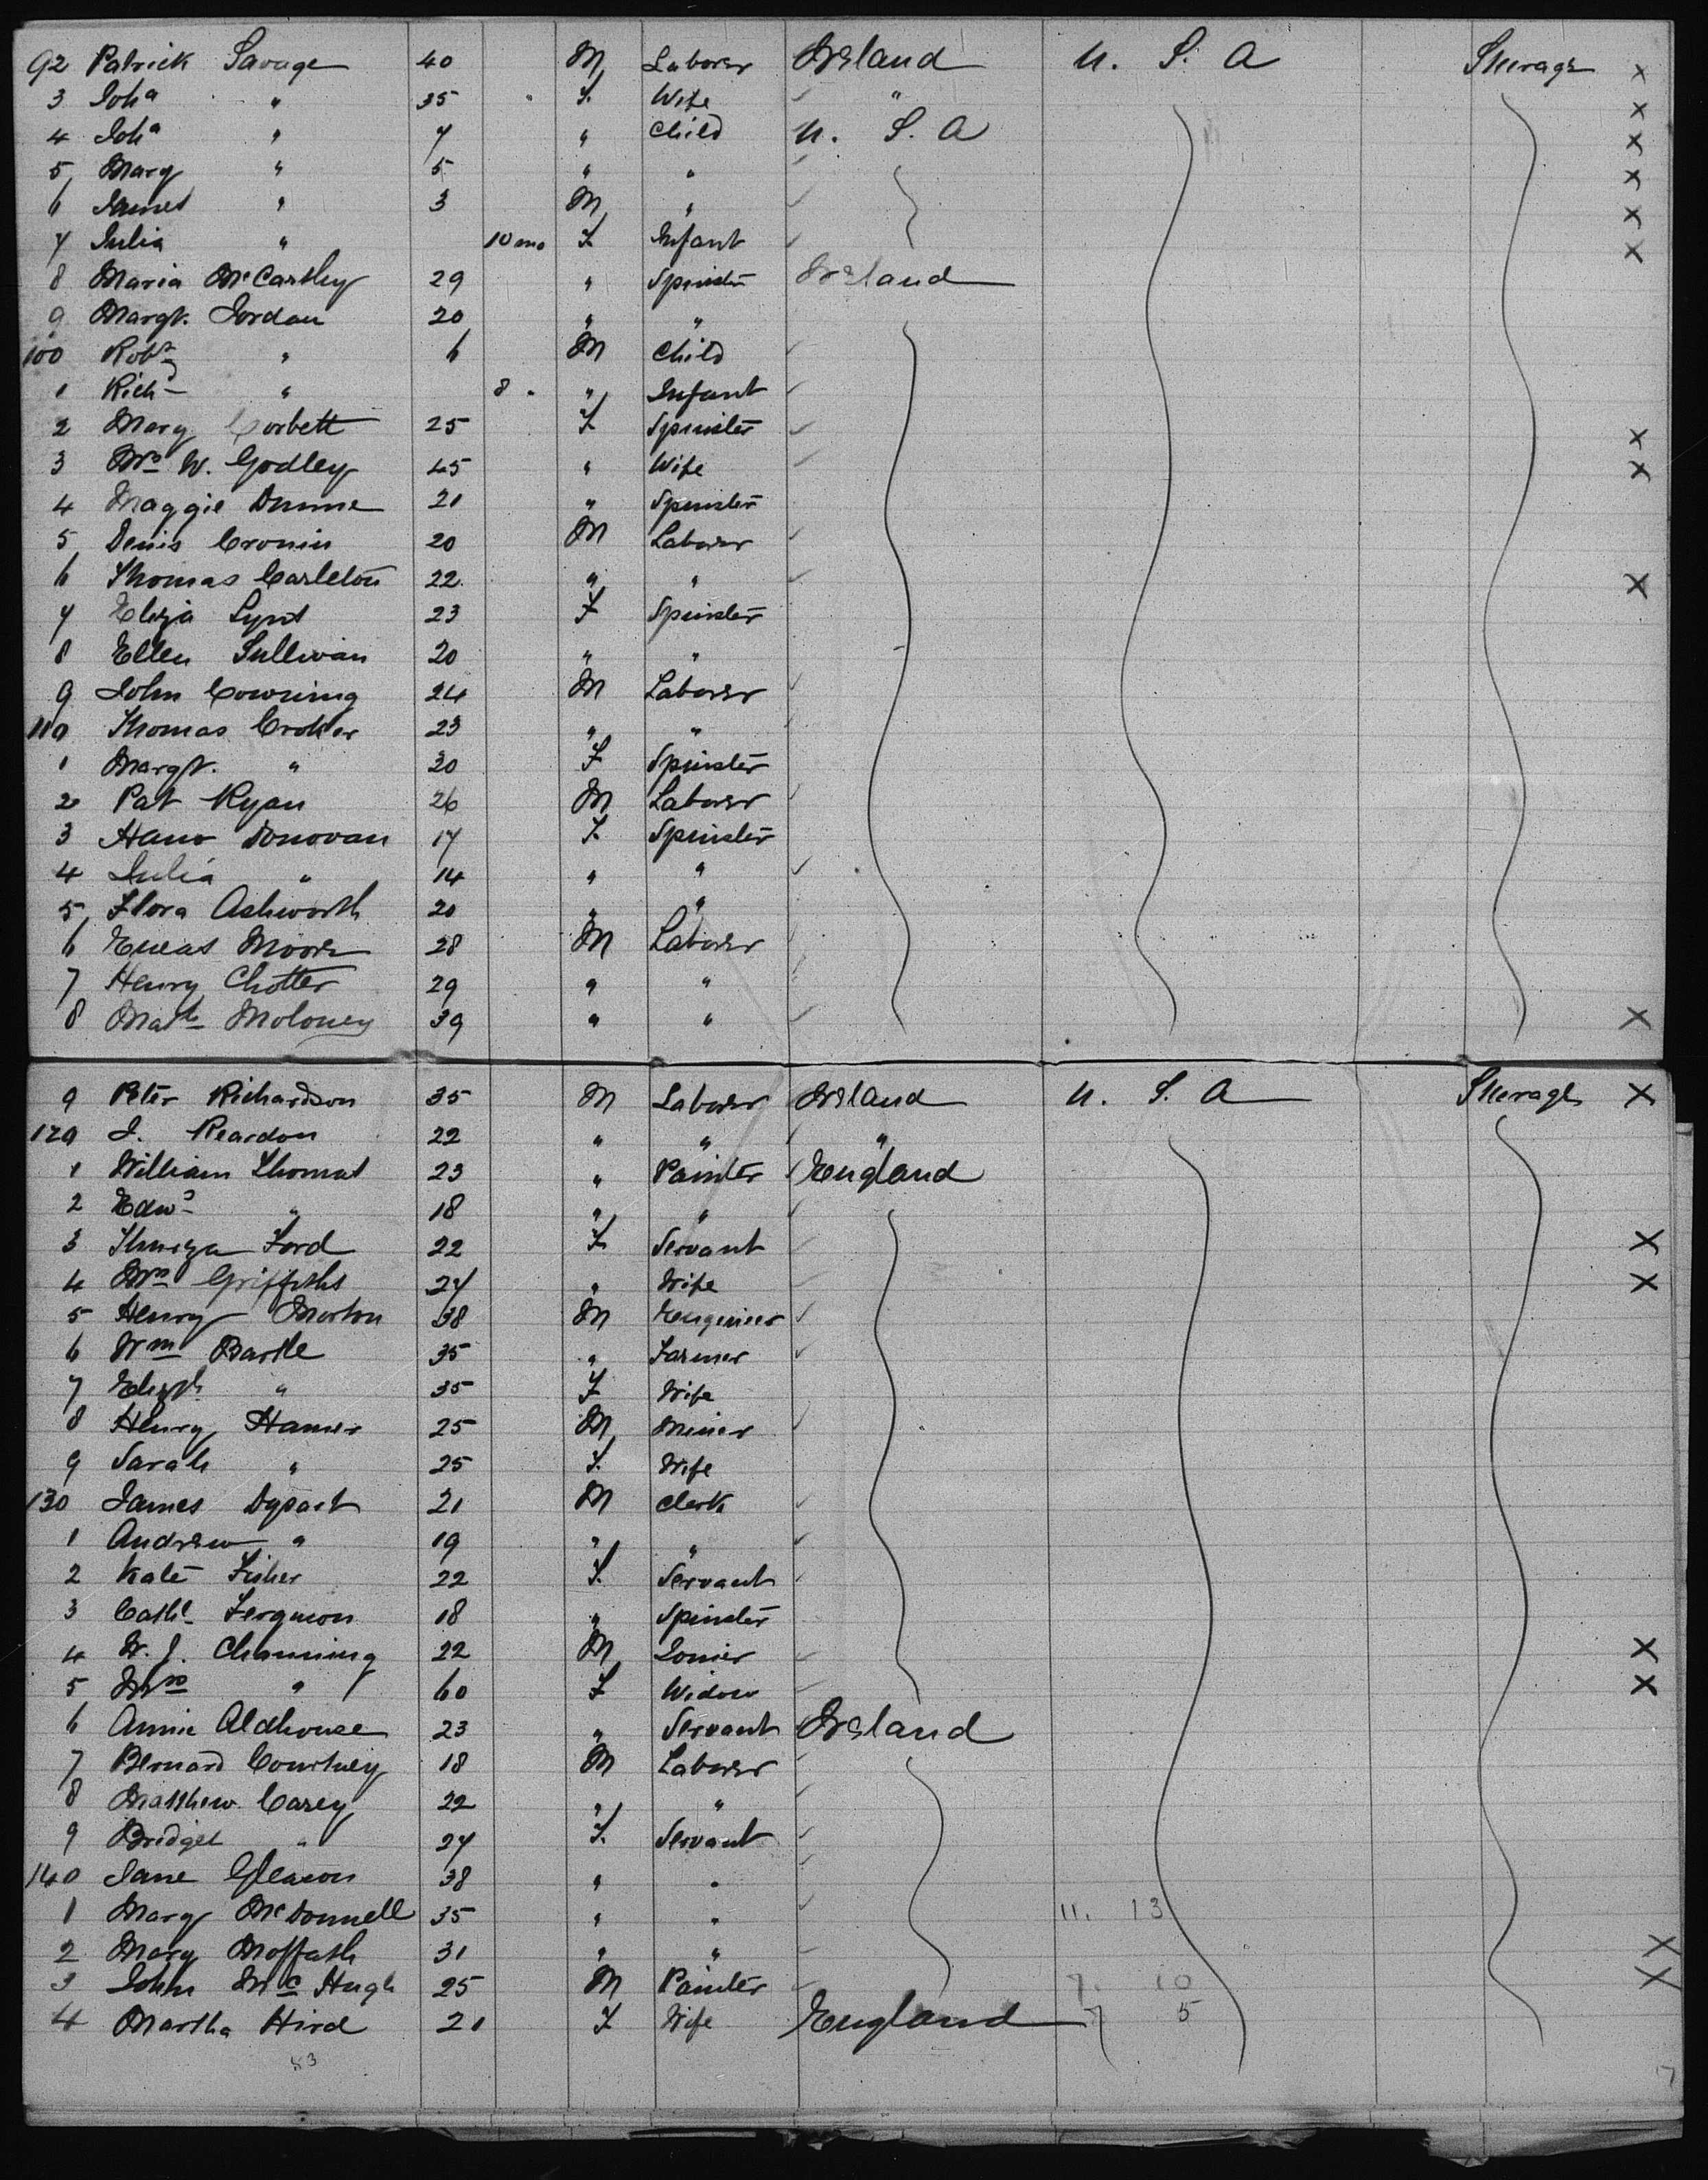 92 Patrick Savage 40 M Laborer Ireland U. S. A Steerage ×
3 Joh<sup>a</sup> " 35 F. Wife " ×
4 Joh<sup>a</sup> " 7 " Child U. S. A ×
5 Mary " 5 " " ×
6 James " 3 M " ×
7 Julia " 10 mo F Infant ×
8 Maria McCarthy 29 " Spinster Ireland
9 Margt. Jordan 20 " "
100 Robt " 6 M Child
1 Richd " 8 " " Infant
2 Mary Corbett 25 F Spinster ×
3 Mrs W. Godley 45 " Wife ×
4 Maggie Dunne 21 " Spinster
5 Denis Cronin 20 M Laborer
6 Thomas Carleton 22 " " ×
7 Eliza 23 F Spinster
8 Ellen Sullivan 20 " "
9 John 24 M Laborer
110 Thomas Croker 23 " "
1 Margt. " 20 F Spinster
2 Pat Ryan 26 M Laborer
3 Hano Donovan 17 F. Spinster
4 Julia " 14 " "
5 Flora Ashworth 20 " "
6 Eneas Moore 28 M Laborer
7 Henry Chotter 29 " "
8 Matw Moloney 39 " " ×
9 Peter Richardson 35 M Laborer Ireland U. S. A Steerage ×
120 J. Reardon 22 " " "
1 William Thomas 23 " Painter England
2 Edwd " 18 " "
3 Ford 22 F Servant ×
4 Mrs Griffiths 27 " Wife ×
5 Henry Morton 38 M Engineer
6 Wm Bartle 35 " Farmer
7 Elizh " 35 F Wife
8 Henry Hamer 25 M Miner
9 Sarah " 25 F. Wife
130 James Dysart 21 M Clerk
1 Andrew " 19 " "
2 Kate Fisher 22 F. Servant
3 Cathe Ferguson 18 " Spinster
4 W. J. Channing 22 M ×
5 Mrs " 60 F Widow ×
6 Annie Aldhouse 23 " Servant Ireland
7 Bernard Courtney 18 M Laborer
8 Matthew Carey 22 " "
9 Bridget " 27 F. Servant
140 Jane Gleason 38 " "
1 Mary McDonnell 35 " " 11. 13
2 Mary Moffath 31 " " ×
3 John Mc Hugh 25 M Painter 7. 10 ×
4 Martha Hird 21 F Wife England 7 5
53